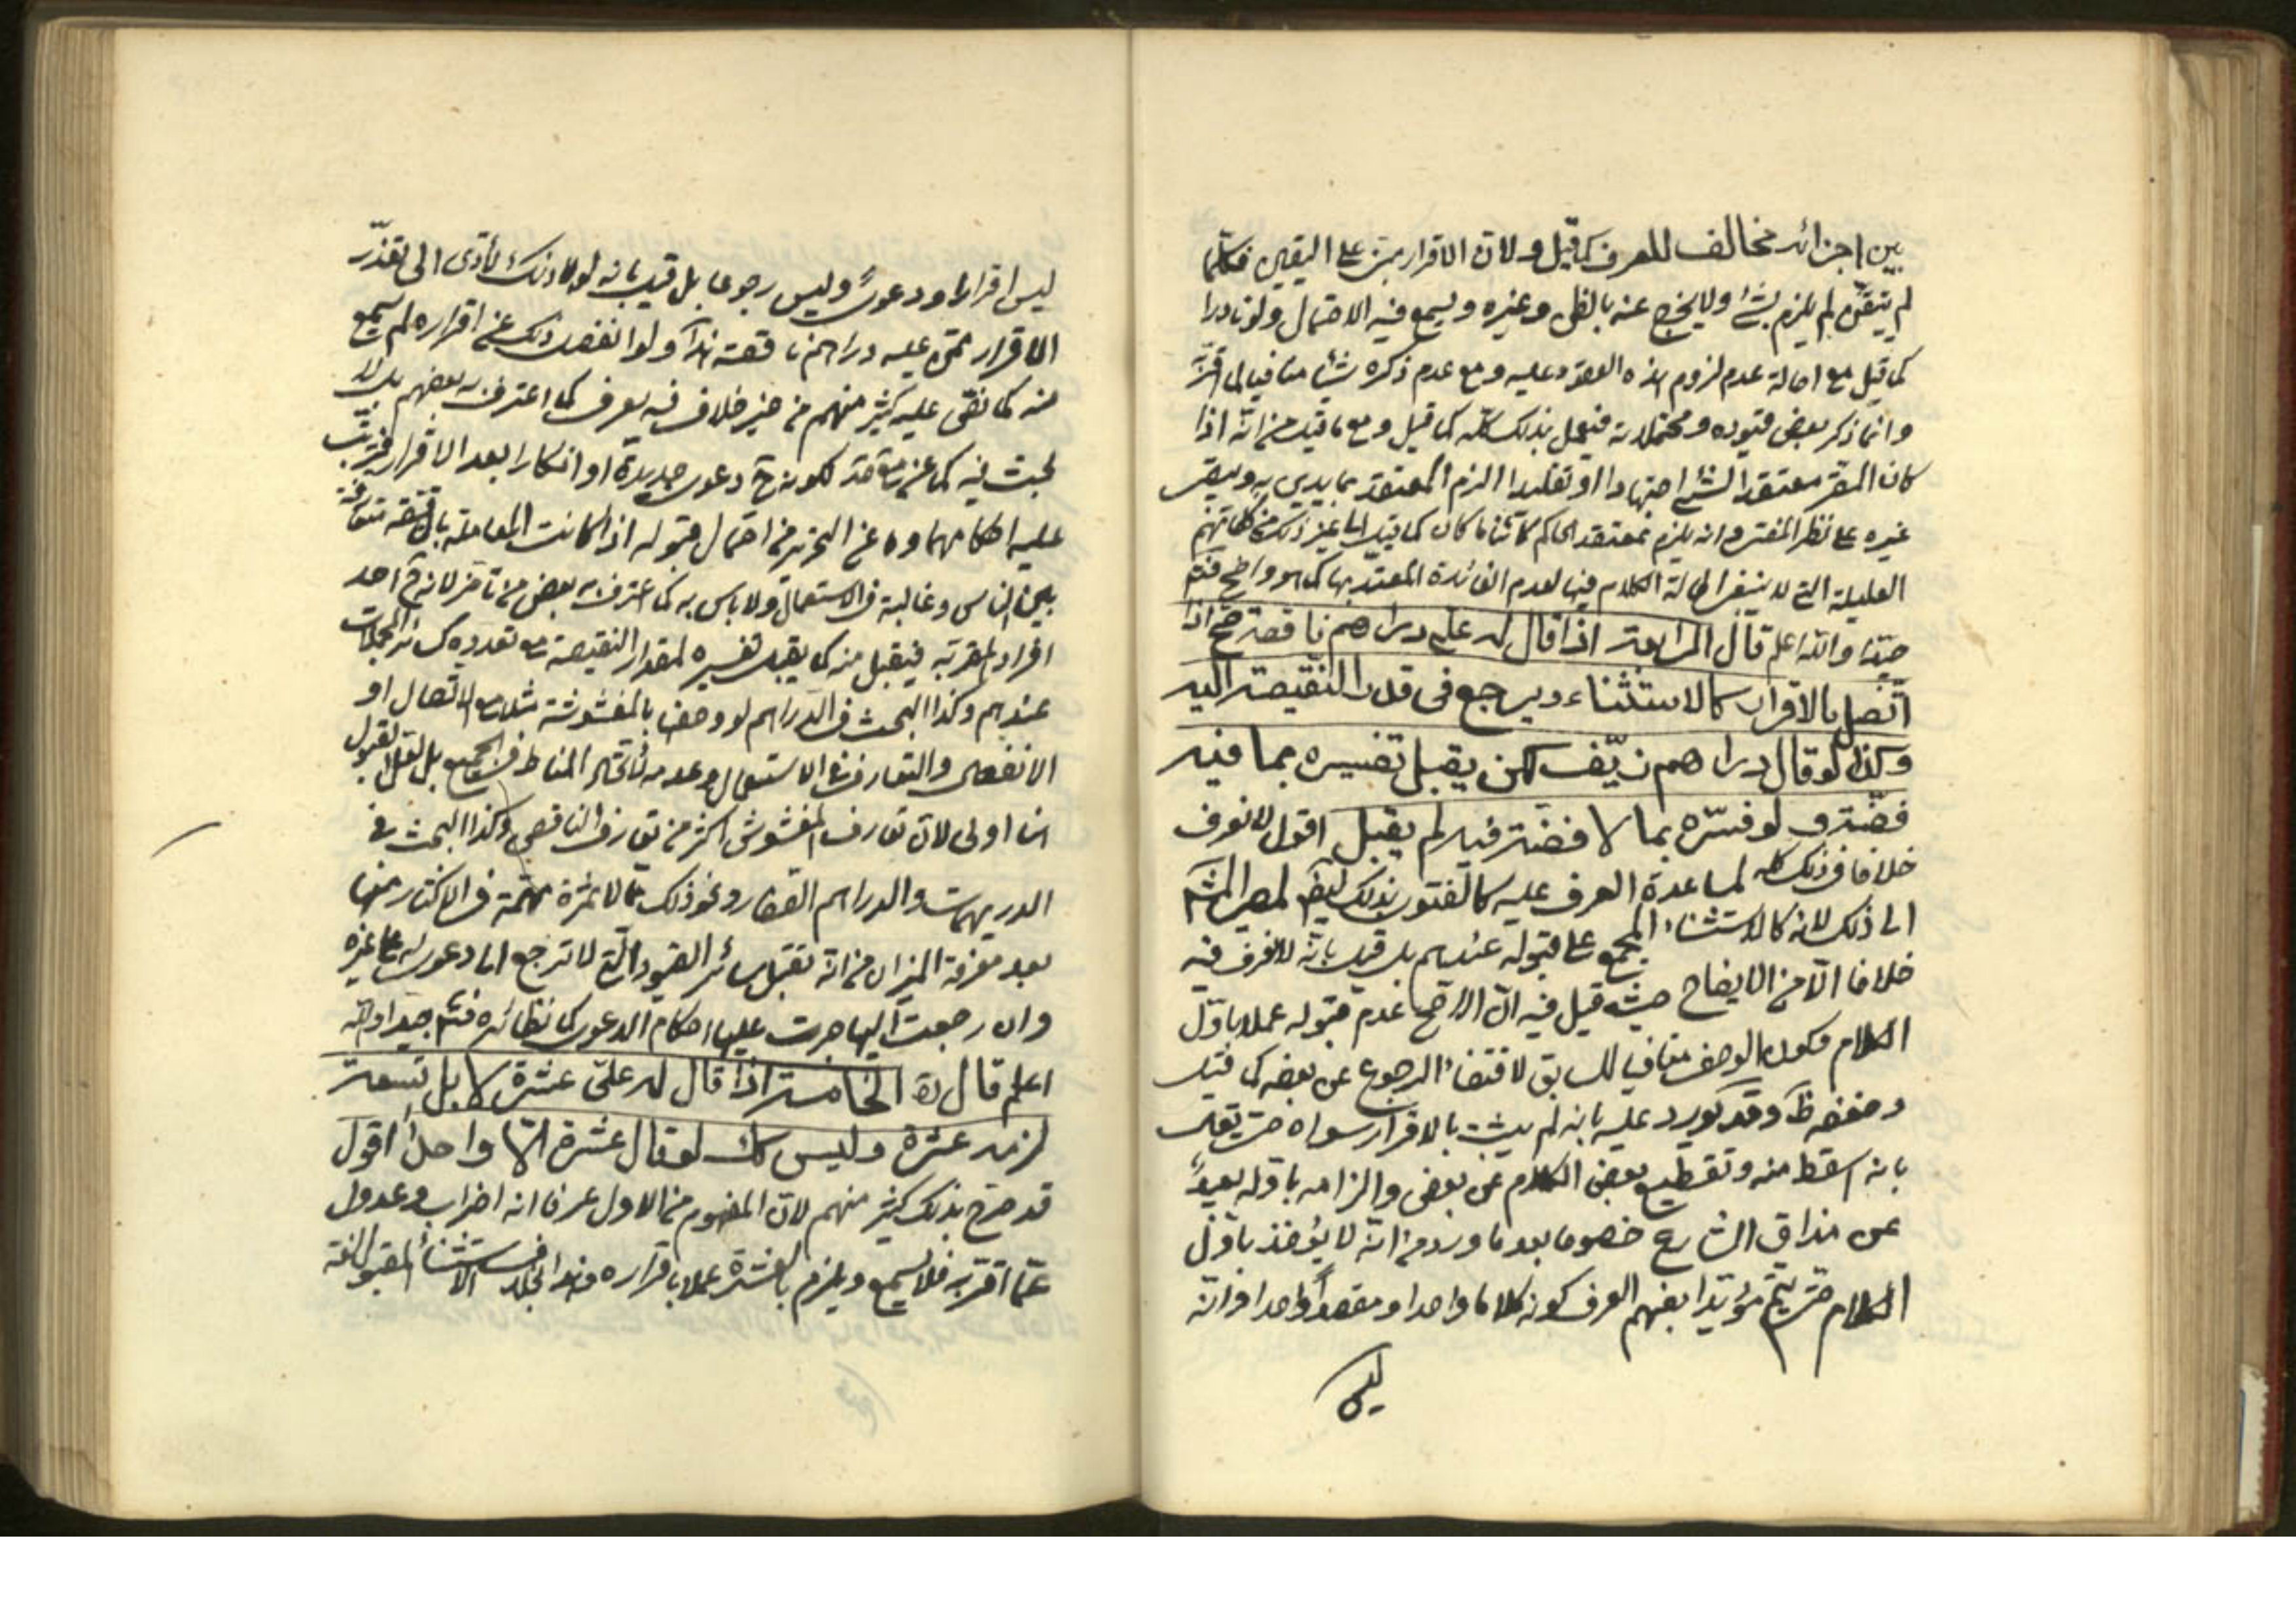 بين اجزائه مخالف للعرف كما قيل ولان الاقرار مبنى على اليقين فكلما
لم يتيقن لم يلزم بشئ ولا يخرج عنه بالظن وغيره ويسمع فيه الاحتمال ولو نادرا
كما قيل مع اصالة عدم لزوم هذه العقود عليه ومع عدم ذكره شيئا منافيا لما اقرّ
وانما ذكر بعض قيوده ومحتملاته فيعمل بذلك كله كما قيل ومع ما قيل من انه اذا
كان المقر معتقدا لشئ اجتهادا او تقليدا الزم المعتقد بما يدين به
غيره على نظر المقر وانه يلزم بمعتقد الحاكم كائنا ما كان كما قيل الى غير ذلك من كلماتهم
العليلة التى لا ينبغى اطالة الكلام فيها لعدم الفائدة المعتد بها كما هو واضح فتم
جيّدا والله اعلم قال الرابعة اذا قال له على دراهم ناقصة صح اذا
اتّصل بالاقرار كالاستثناء ويرجع فى قدر النقيصة اليه
وكذا لو قال دراهم زيّف لكن يقبل تفسيره بما فيه
فضّة و لو فسّره بما لا فضّة فيه لم يقبل اقول لا نعرف
خلافا فى ذلك كله لمساعدة العرف عليه كالفتوى بذلك
الى ذلك لانه كالاستثناء المجمع على قبوله عندهم بل قيل بانّه لا نعرف فيه
خلافا الّا من الايضاح حيث قيل فيه انّ الاصح عدم قبوله عملا باوّل
الكلام فكون الوصف منافيا للسابق لاقتضاء الرجوع عن بعضه كما قيل
وضعفه ظ وقد يورد عليه بانه لم يثبت بالاقرار سواه حتى يقال
بانه اسقط منه وتقطيع بعض الكلام عن بعض والزامه باوله بعيدٌ
عن مذاق الشارع خصوصا بعد ما ورد من انّه لا يؤخذ باوّل
الكلام حتى يتم مؤيّدا بفهم العرف كونه كلاما واحدا ومقصدا واحدا وانّه
ليس
ليس اقرارا ودعوىً وليس رجوعا بل قيل بانه لولا ذلك لأدّى الى تعذّر
الاقرار ممّن عليه دراهم ناقصة هذا ولو انفصل ذلك عن اقراره لم يسمع
منه كما نصّ عليه كثير منهم من غير خلاف فيه يعرف كما اعترف به بعضهم بل لا
بحث فيه كما عن لكونه ح دعوى جديدة او انكارا بعد الاقرار فيترتّب
عليه احكامهما وما عن التحرير من احتمال قبوله اذا كانت المعاملة بالناقصة متعارفة
بين الناس وغالبة فى الاستعمال ولا باس به كما اعترف به بعض من تأخر لانه ح احد
افراد المقربه فيقبل منه كما يقبل تفسيره لمقدار النقيصة مع تعدده كسائر المجملات
عندهم وكذا البحث فى الدراهم لو وصف بالمغشوشة مثلا مع الاتصال او
الانفصال والتعارف فى الاستعمال وعدمه لاتحاد المناط فى الجميع بل لعل القبول
هنا اولى لان تعارف المغشوش اكثر من تعارف الناقص وكذا البحث فى
الدريهمات والدراهم القصار ونحو ذلك ممّا لا ثمرة مهمّة فى الاكثار منها
بعد معرفة الميزان من انه تقبل سائر القيود التى لا ترجع الى دعوى له على غيره
وان رجعت اليها جرت عليها احكام الدعوى كما نظائره فتم جيّدا والله
اعلم قال ره الخامسة اذا قال له علىّ عشرة لا بل تسعة
لزمه عشرة وليس كك لو قال عشرة الّا واحداً اقول
قد صرّح بذلك كثير منهم لان المفهوم من الاول عرفا انه اضراب وعدول
عمّا اقرّ به فلا يسمع ويلزم بالعشرة عملا باقراره وهذا بخلاف الاستثناء المقبول لغة